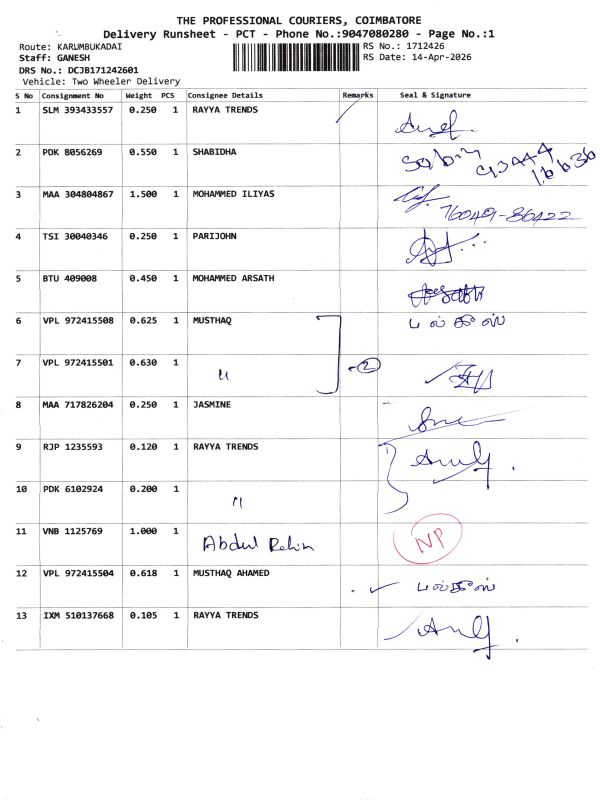 THE PROFESSIONAL COURIERS, COIMBATORE
Delivery Runsheet - PCT - Phone No.:9047080280 - Page No.:1
Route: KARUMBUKADAI RS No.: 1712426
Staff: GANESH RS Date: 14-Apr-2026
DRS No.: DCJB171242601
Vehicle: Two Wheeler Delivery
S No Consignment No Weight PCS Consignee Details Remarks Seal & Signature
1 SLM 393433557 0.250 1 RAYYA TRENDS
2 PDK 8056269 0.550 1 SHABIDHA
3 MAA 304804867 1.500 1 MOHAMMED ILIYAS
76049-86422
4 TSI 30040346 0.250 1 PARIJOHN
5 BTU 409008 0.450 1 MOHAMMED ARSATH
6 VPL 972415508 0.625 1 MUSTHAQ பல்கீஸ்
7 VPL 972415501 0.630 1 〃 -2
8 MAA 717826204 0.250 1 JASMINE
9 RJP 1235593 0.120 1 RAYYA TRENDS
10 PDK 6102924 0.200 1 〃
11 VNB 1125769 1.000 1 Abdul NP
12 VPL 972415504 0.618 1 MUSTHAQ AHAMED பல்கீஸ்
13 IXM 510137668 0.105 1 RAYYA TRENDS